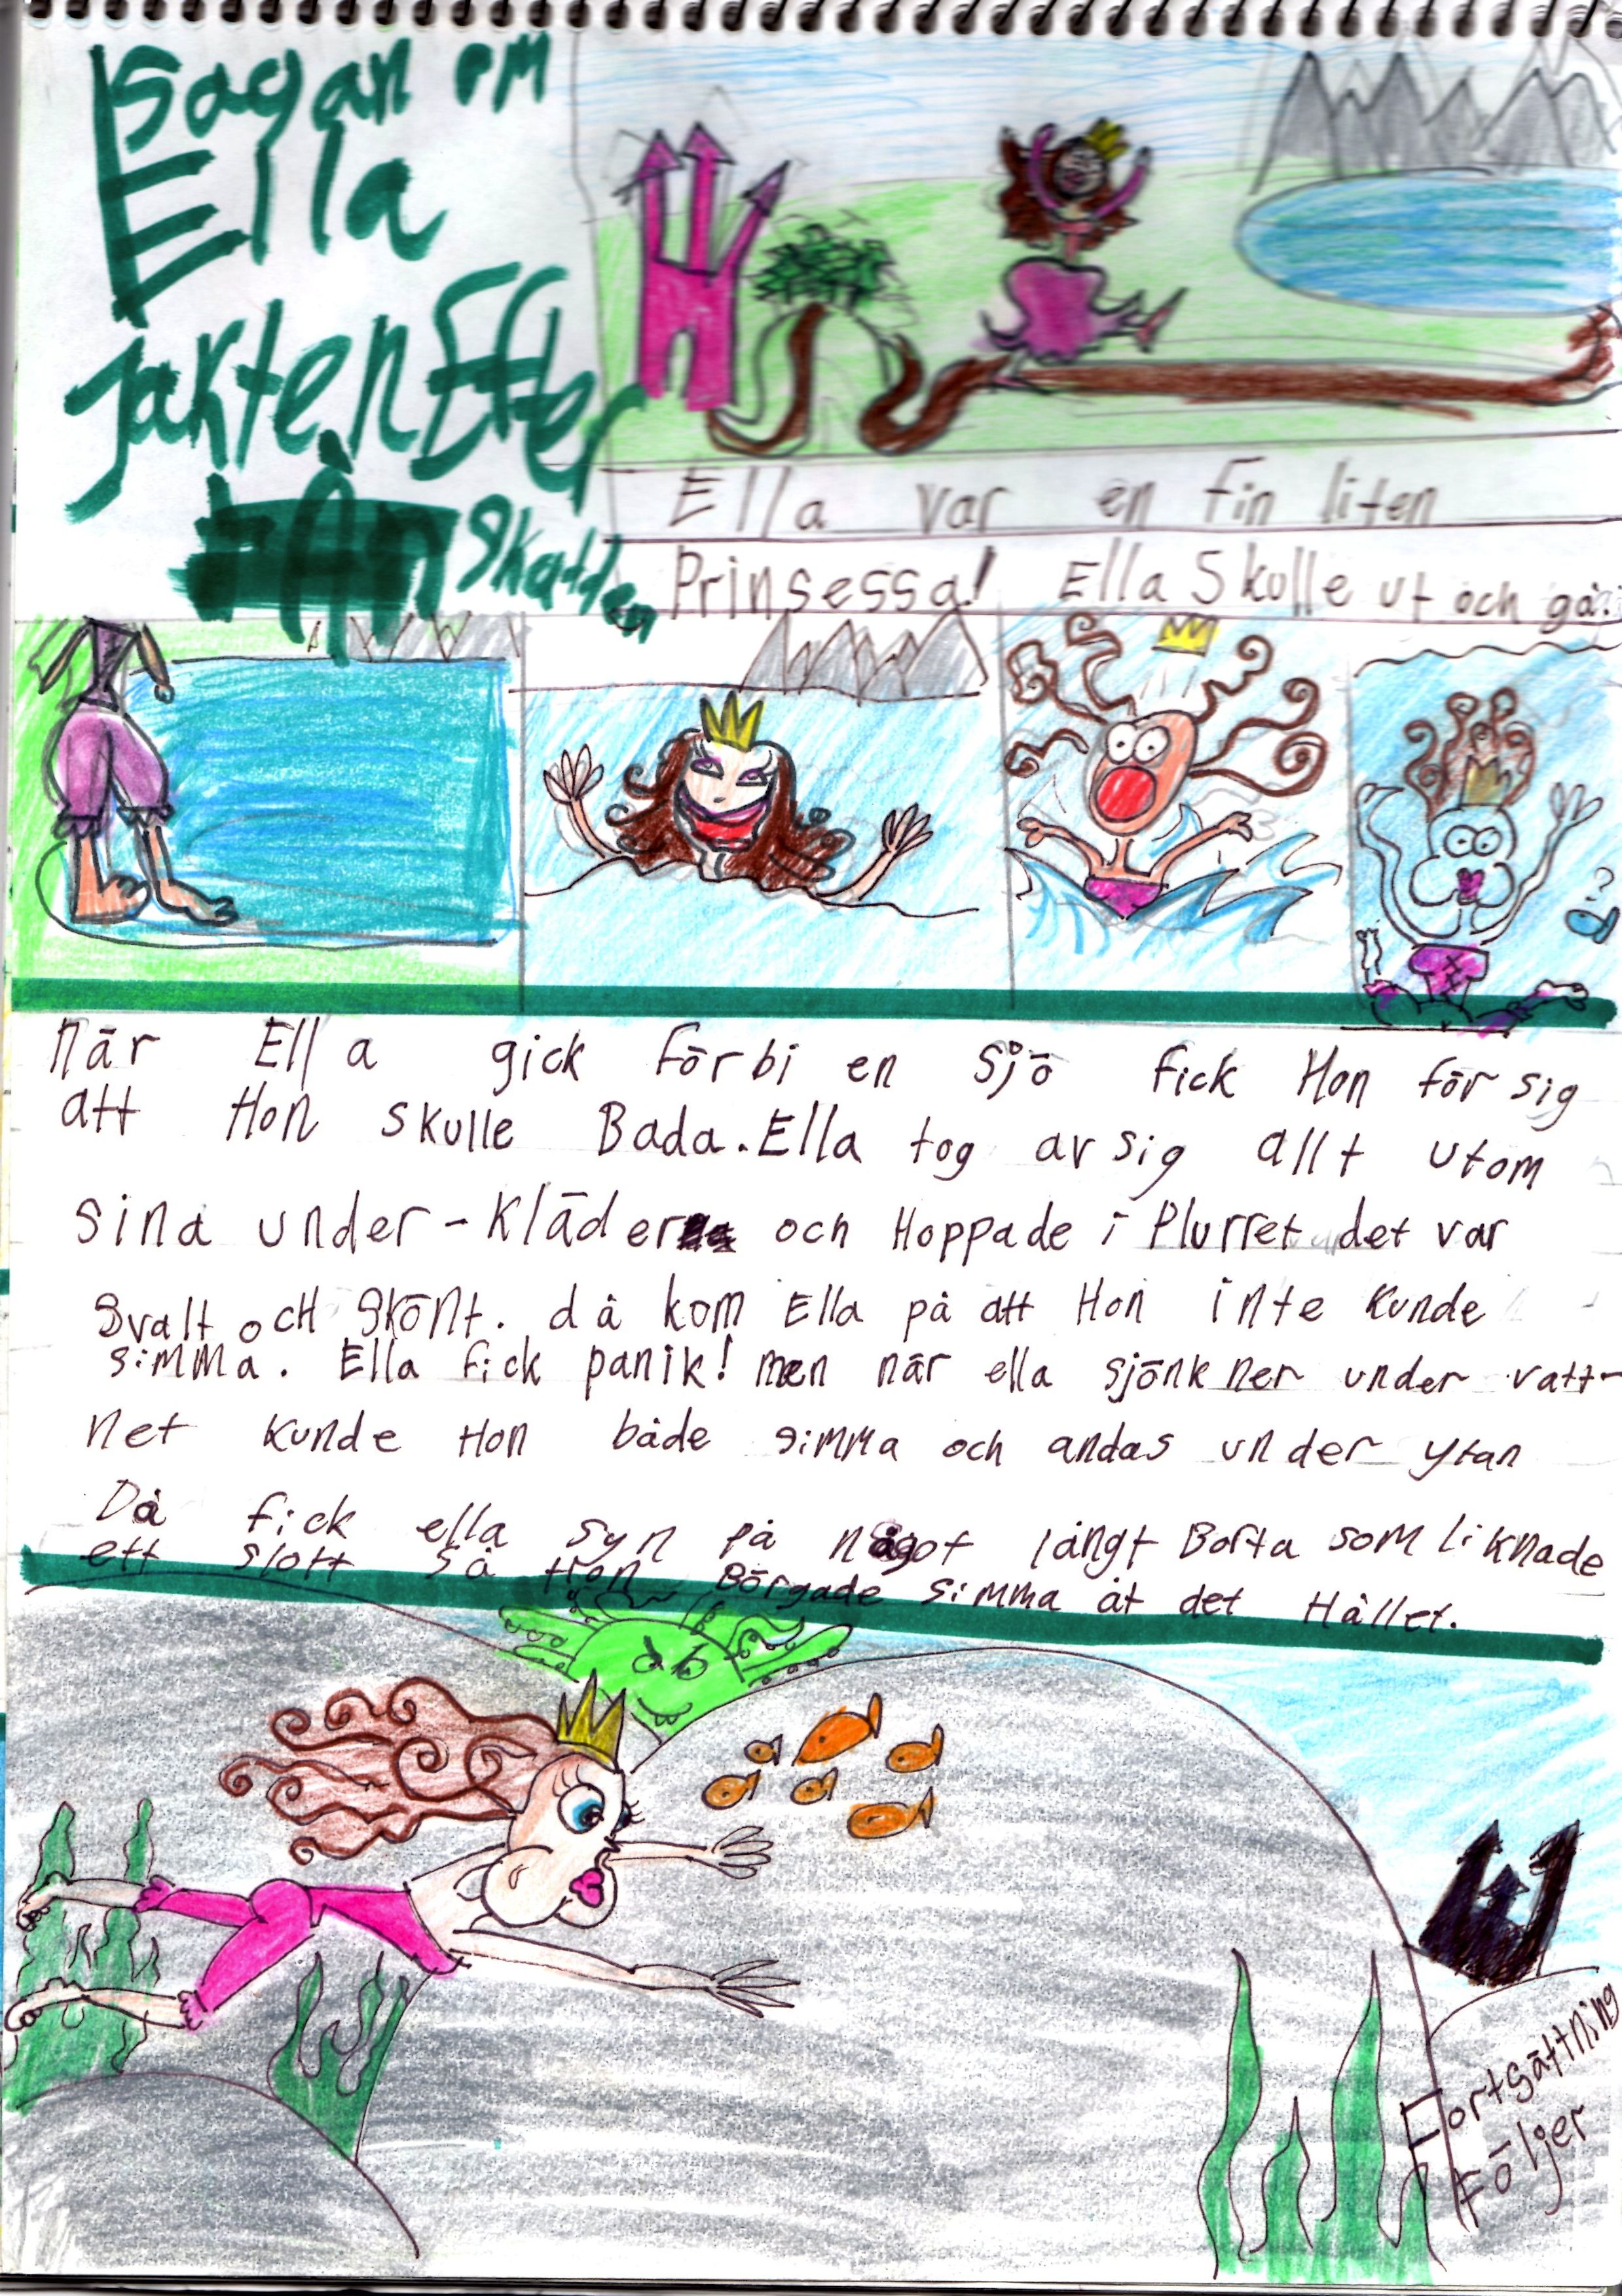 Sagan om
Ella
jakten Efter
Skatten
Ella var en fin liten
Prinsessa! Ella Skulle ut och gå!
När Ella gick förbi en Sjö fick Hon för sig
att Hon skulle Bada. Ella tog av sig allt utom
sina under-kläder och Hoppade i Plurret det var
Svalt och Skönt. då kom Ella på att Hon inte kunde
simma. Ella fick panik! men när ella sjönk ner under vatt-
net kunde Hon både simma och andas under ytan
Då fick ella syn på något långt Borta som liknade
ett slott så Hon Börgade simma åt det Hållet.
?
Fortsättning
Följer